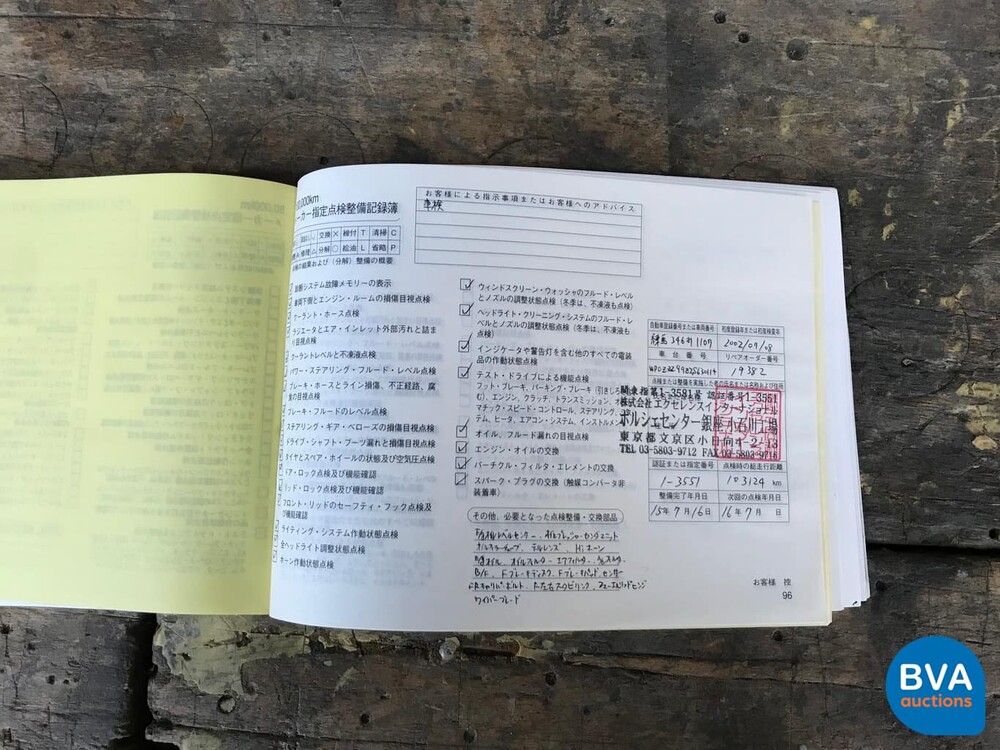 0,000km
ーカー指定点検整備記録簿
お客様による指示事項またはお客様へのアドバイス
車検
交換 × 締付 T 清掃 C
分解 ○ 給油 L 省略 P
の結果および（分解）整備の概要
診断システム故障メモリーの表示
車両下側とエンジン・ルームの損傷目視点検
クーラント・ホース点検
ラジエータとエア・インレット外部汚れと詰まり目視点検
クーラントレベルと不凍液点検
パワー・ステアリング・フルード・レベル点検
ブレーキ・ホースとライン損傷、不正経路、腐食の目視点検
ブレーキ・フルードのレベル点検
ステアリング・ギア・ベローズの損傷目視点検
ドライブ・シャフト・ブーツ漏れと損傷目視点検
タイヤとスペア・ホイールの状態及び空気圧点検
ドア・ロック点検及び機能確認
リッド・ロック点検及び機能確認
フロント・リッドのセーフティ・フック点検及び機能確認
ライティング・システム作動状態点検
全ヘッドライト調整状態点検
ホーン作動状態点検
ウィンドスクリーン・ウォッシャのフルード・レベル
とノズルの調整状態点検（冬季は、不凍液も点検）
ヘッドライト・クリーニング・システムのフルード・レ
ベルとノズルの調整状態点検（冬季は、不凍液も
点検）
インジケータや警告灯を含む他のすべての電装
品の作動状態点検
テスト・ドライブによる機能点検
フット・ブレーキ、パーキング・ブレーキ（引きしろ
む）、エンジン、クラッチ、トランスミッション、
マチック・スピード・コントロール、ステアリング、
テム、ヒータ、エアコン・システム、インストルメン
オイル、フルード漏れの目視点検
エンジン・オイルの交換
パーチクル・フィルタ・エレメントの交換
スパーク・プラグの交換（触媒コンバータ非
装着車）
その他、必要となった点検整備・交換部品
ワイパーブレード
自動車登録番号または車両番号 初度登録年または初度検査年
練馬 346 1107 2002/09/08
車台番号 リペアオーダー番号
19382
点検または整備を実施した者の氏名または名称および住所
関東指第1-3581号 認証番号1-3551
株式会社エクセレンスインターナショナル
ポルシェセンター銀座小石川工場
東京都文京区小日向4-2-13
TEL 03-5803-9712 FAX 03-5803-9718
認証または指定番号 点検時の総走行距離
1-3551 103124 km
整備完了年月日 次回の点検年月日
15年 7月16日 16年 7月 日
お客様 控
96
BVA
auctions